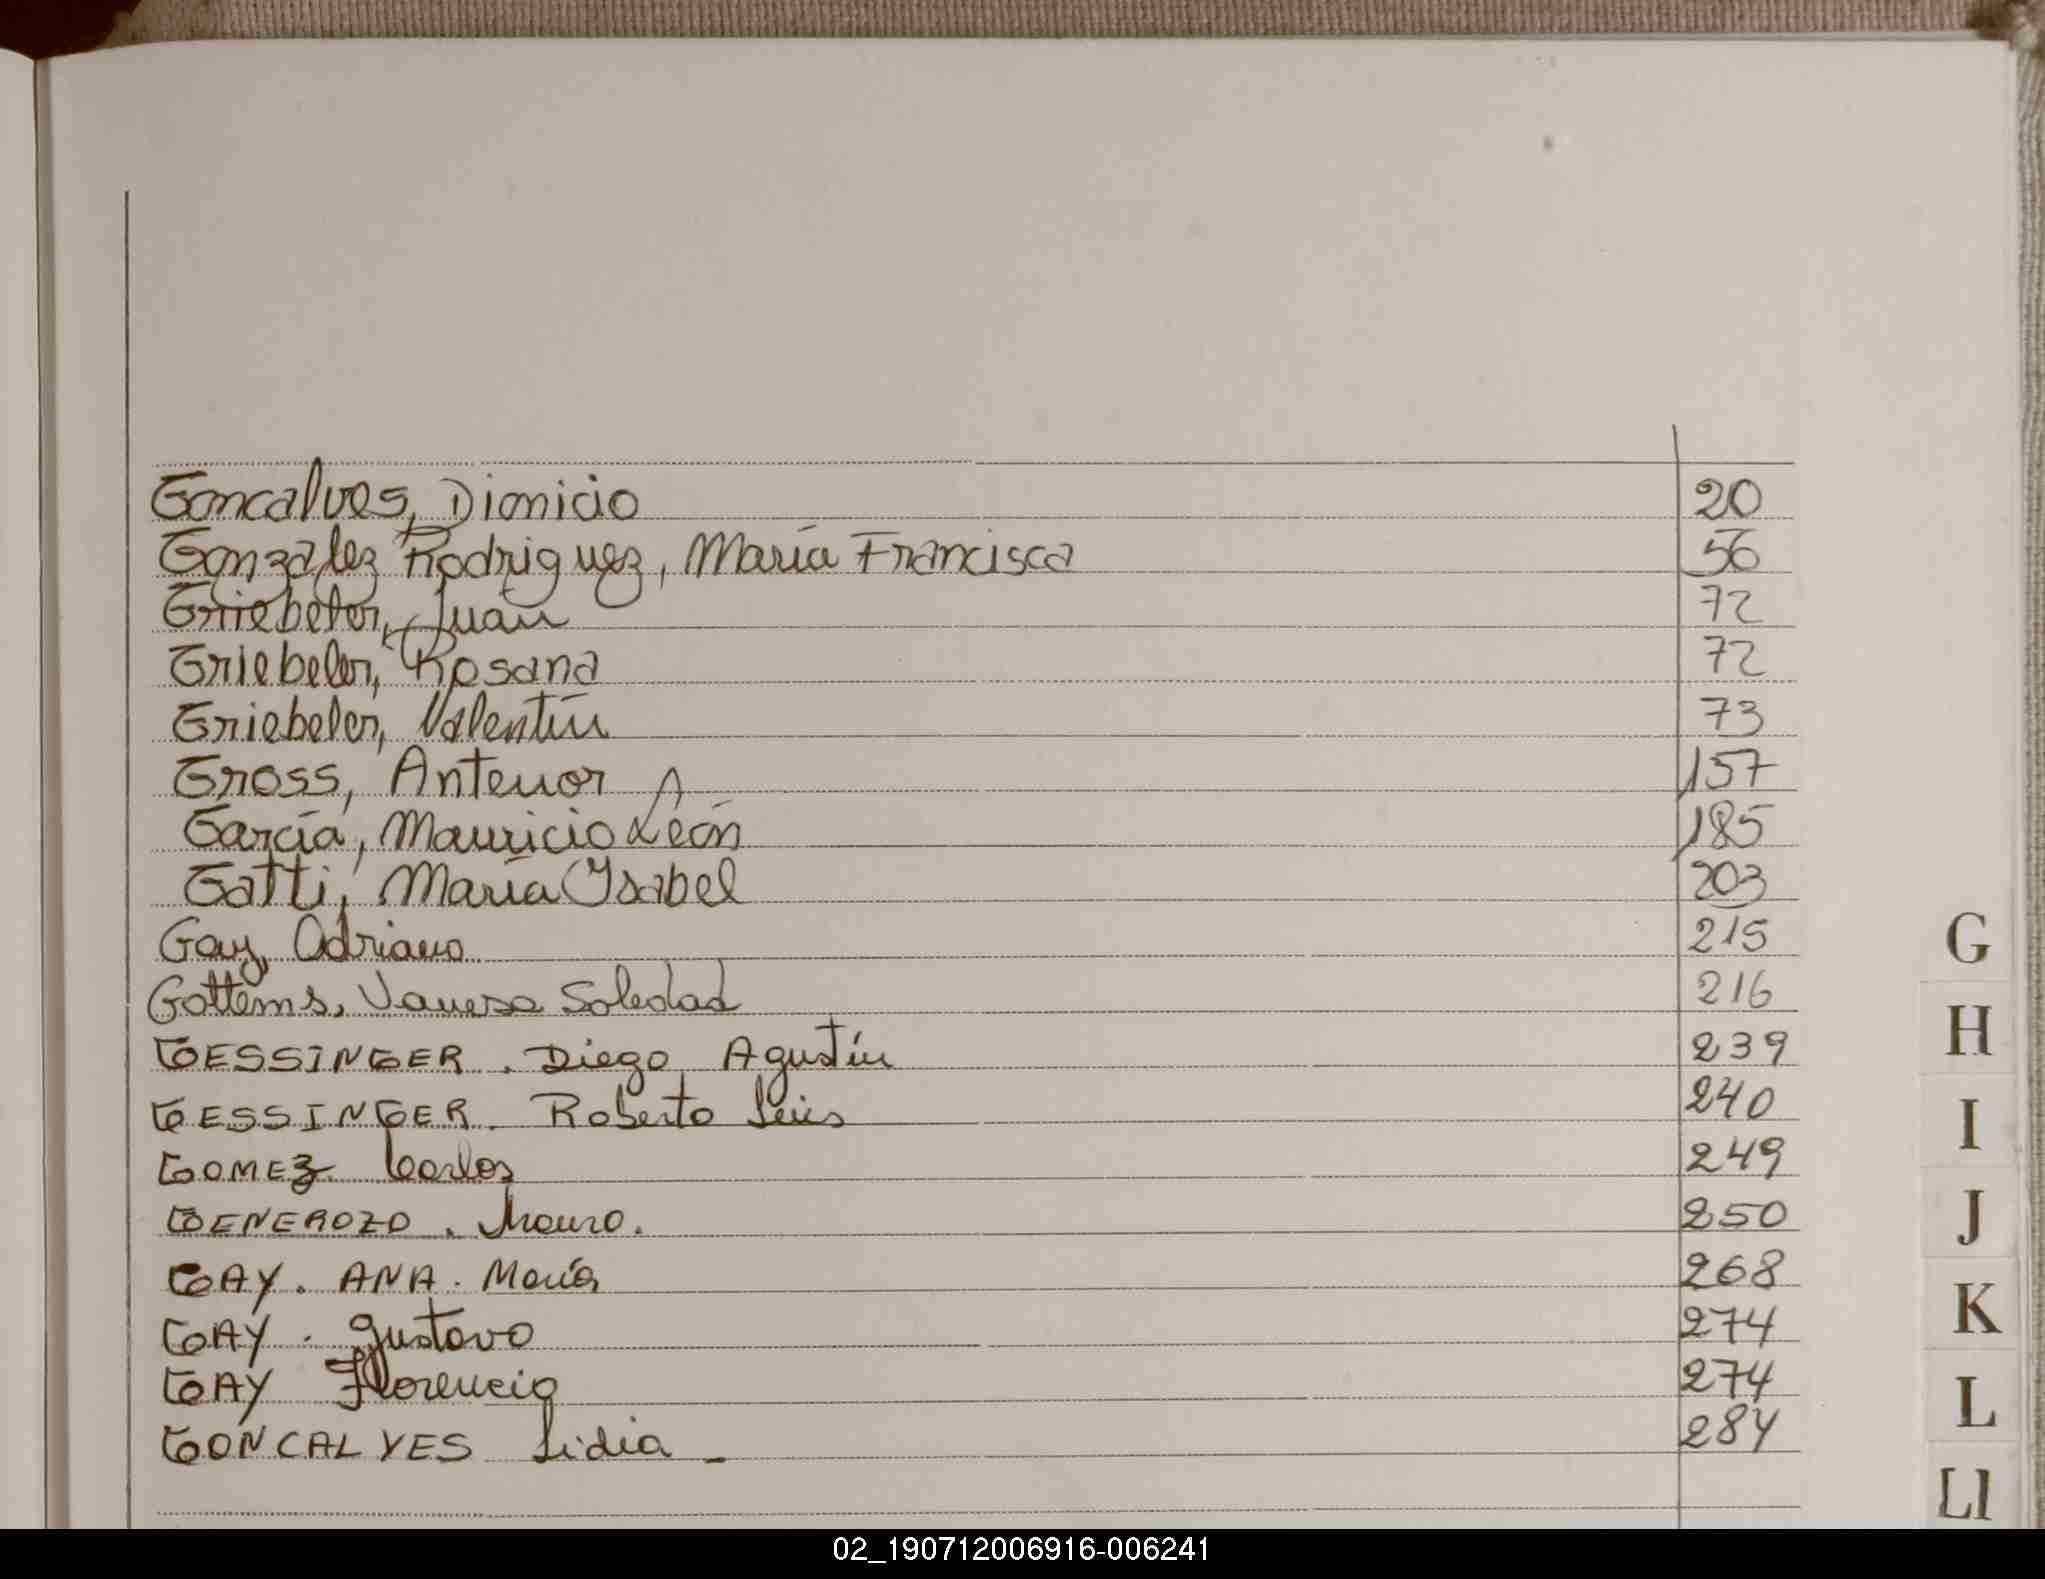 Goncalves, Dionicio 20
González Rodriguez, María Francisca 56
Griebeler, Juan 72
Griebeler, Rosana 72
Griebeler, Valentín 73
Gross, Antenor 157
García, Mauricio León 185
Gatti, María Ysabel 203
Gay, Adriano 215
Gottems, Vanesa Soledad 216
GESSINGER. Diego Agustín 239
GESSINGER. Roberto Luis 240
GOMEZ Carlos 249
GENEROZO. Mauro. 250
GAY. ANA. María 268
GAY. Gustavo 274
GAY Florencia 274
GONCALVES Lidia - 284
G
H
I
J
K
L
Ll
02_190712006916-006241